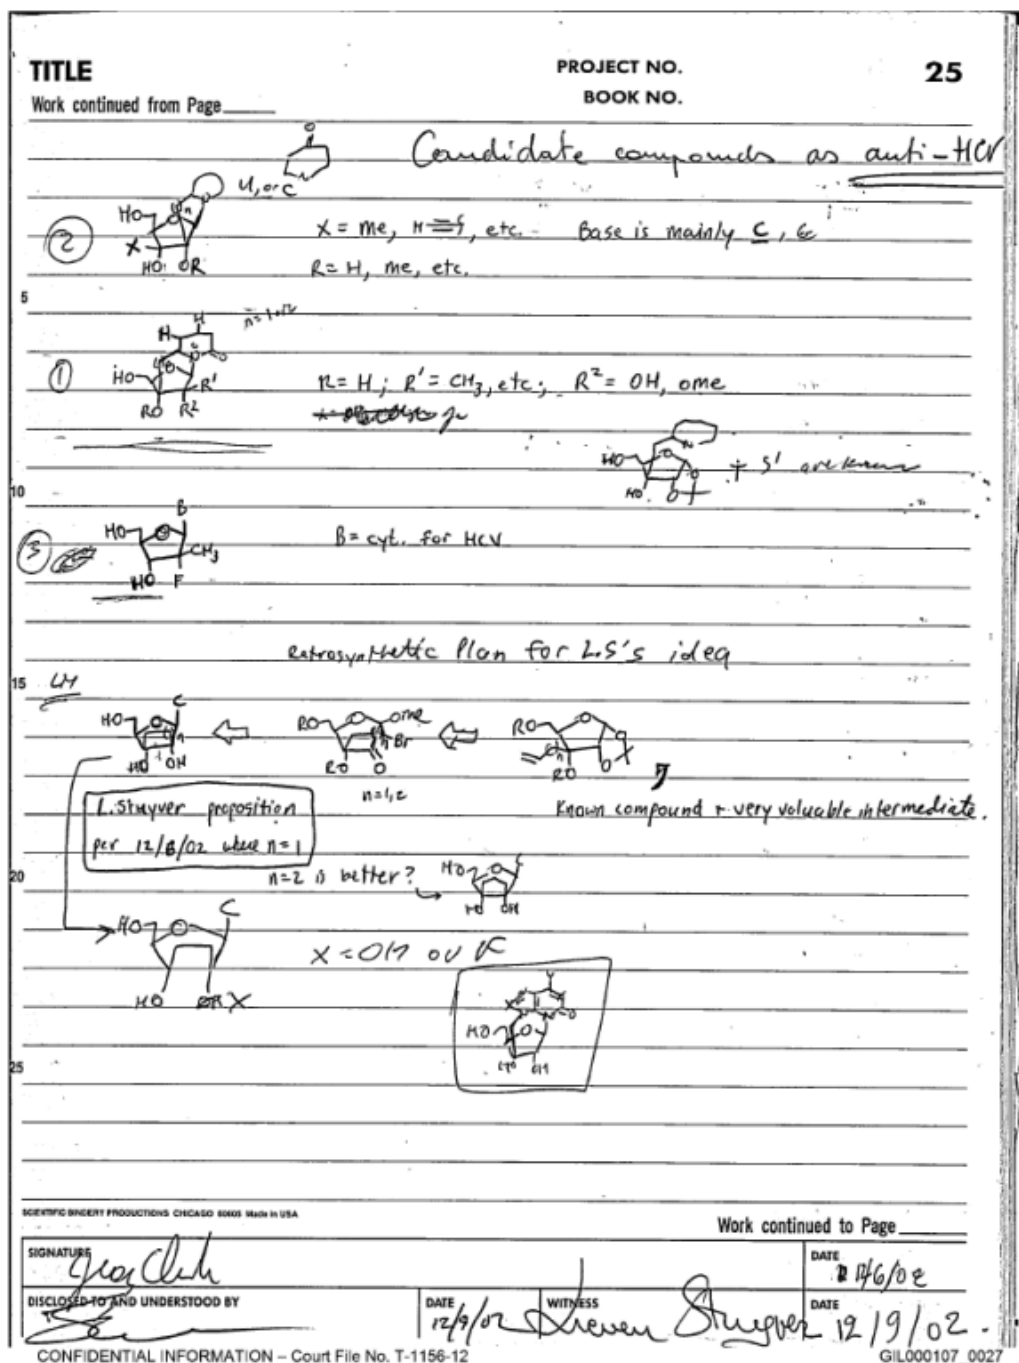 TITLE
PROJECT NO.
25
Work continued from Page
BOOK NO.
Candidate compounds as anti-HCV
O
U, or C
HO
X
HO OR
②
X = me, H≡, etc. Base is mainly C, G
R = H, me, etc.
5
n=1 or 2
H
H
O
①
HO
O
R'
RO R²
R = H; R' = CH₃, etc; R² = OH, ome
HO
O
N
HO O
S' are known
10
③
B
HO
O
CH₃
HO F
B = cyt. for HCV
Retrosynthetic Plan for L.S's idea
15
LM
HO O C
n
HO OH
RO O ome
Br
RO O
n=1,2
RO O
n
O
RO O
7
L. Stuyver proposition
per 12/8/02 where n=1
Known compound + very valuable intermediate.
20
n=2 is better?
HO O C
HO OH
HO O C
HO X
X = OH or F
Y
X
N O
HO O
HO OH
25
SCIENTIFIC BINDERY PRODUCTIONS CHICAGO 60605 Made in USA
Work continued to Page
SIGNATURE
DATE
12/6/02
DISCLOSED TO AND UNDERSTOOD BY
DATE
12/9/02
WITNESS
Lieven Stuyver
DATE
12/9/02.
CONFIDENTIAL INFORMATION – Court File No. T-1156-12
GIL000107_0027